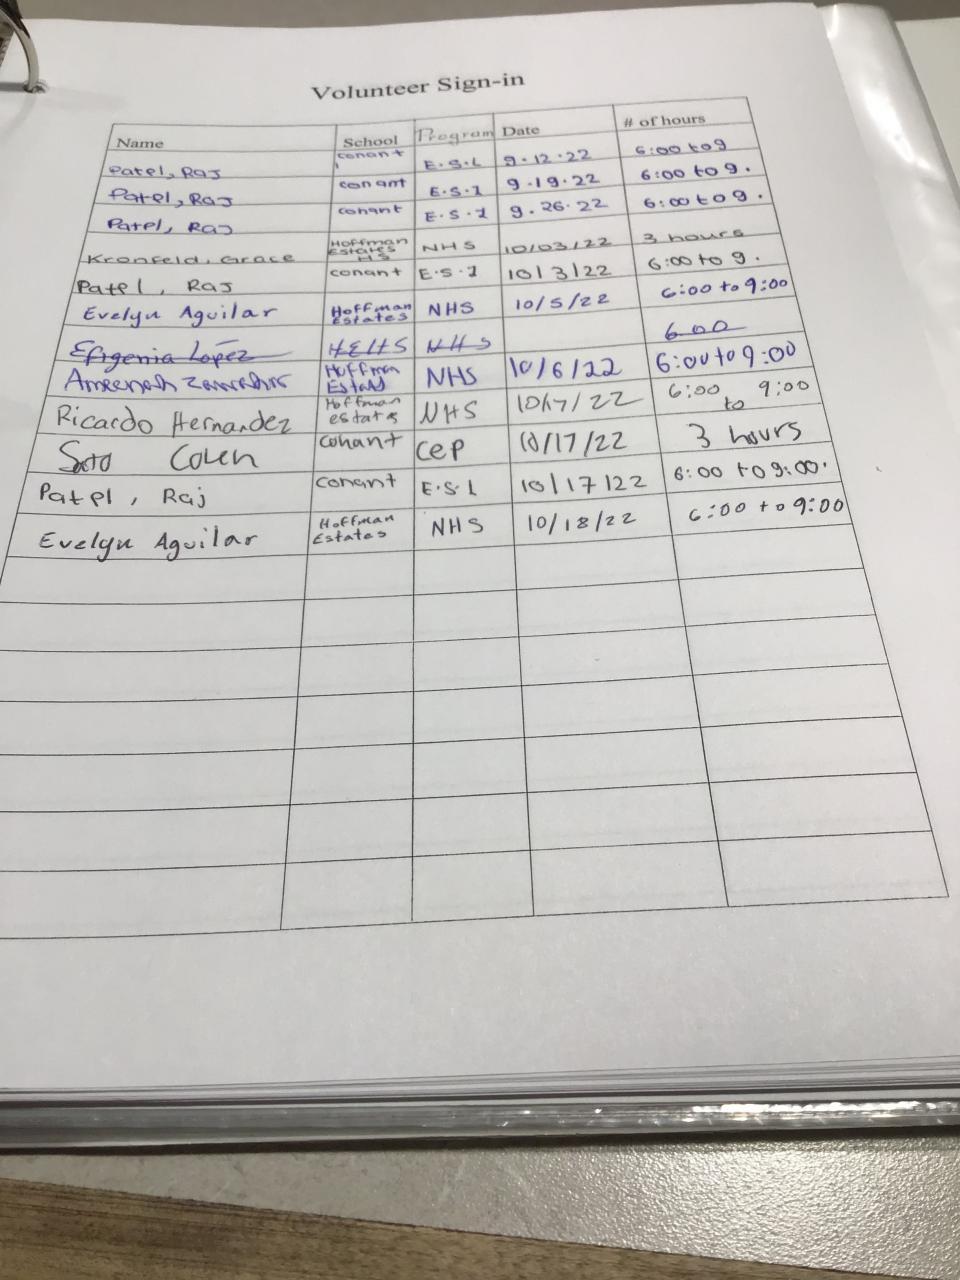 Volunteer Sign-in
Name School Program Date # of hours
Patel, Raj conant E.S.L 9.12.22 6:00 to 9
Patel, Raj conant E.S.L 9.19.22 6:00 to 9.
Patel, Raj conant E.S.L 9.26.22 6:00 to 9.
Kronfeld, Grace Hoffman Estates HS NHS 10/03/22 3 hours
Patel, Raj conant E.S.L 10/3/22 6:00 to 9.
Evelyn Aguilar Hoffman Estates NHS 10/5/22 6:00 to 9:00
Efigenia López HEHS NHS 600
Hoffman NHS 10/6/22 6:00 to 9:00
Ricardo Hernandez Hoffman estates NHS 10/17/22 6:00 to 9:00
conant CEP 10/17/22 3 hours
Patel, Raj conant E.S.L 10/17/22 6:00 to 9:00.
Evelyn Aguilar Hoffman Estates NHS 10/18/22 6:00 to 9:00